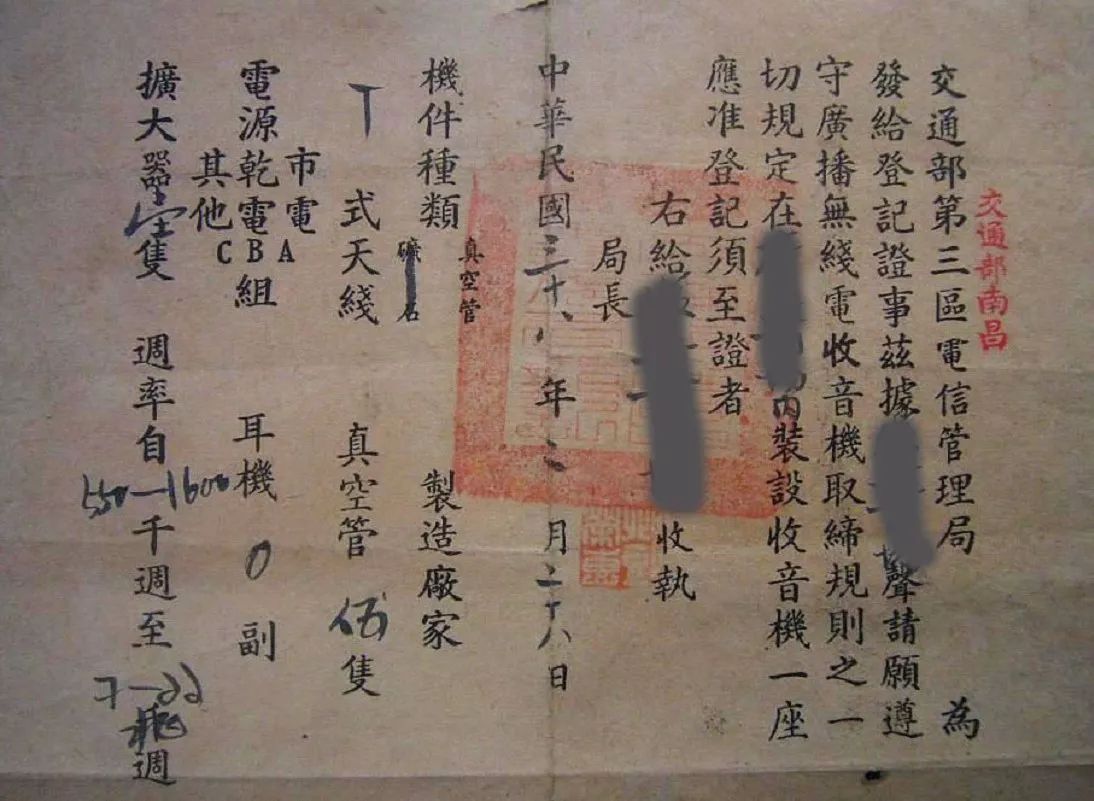 交通部南昌
交通部第三區電信管理局 為
發給登記證事茲據 聲請願遵
守廣播無綫電收音機取締規則之一
切規定在 內裝設收音機一座
應准登記須至證者
右給 收執
局長
中華民國三十八年 月二十八日
機件種類 真空管 礦 製造廠家
T 式天綫 真空管 伍隻
電源 市電 A 乾電 B 其他 C 組 耳機 0 副
擴大器 隻 週率自 550—1600 千週至 7—22 兆週